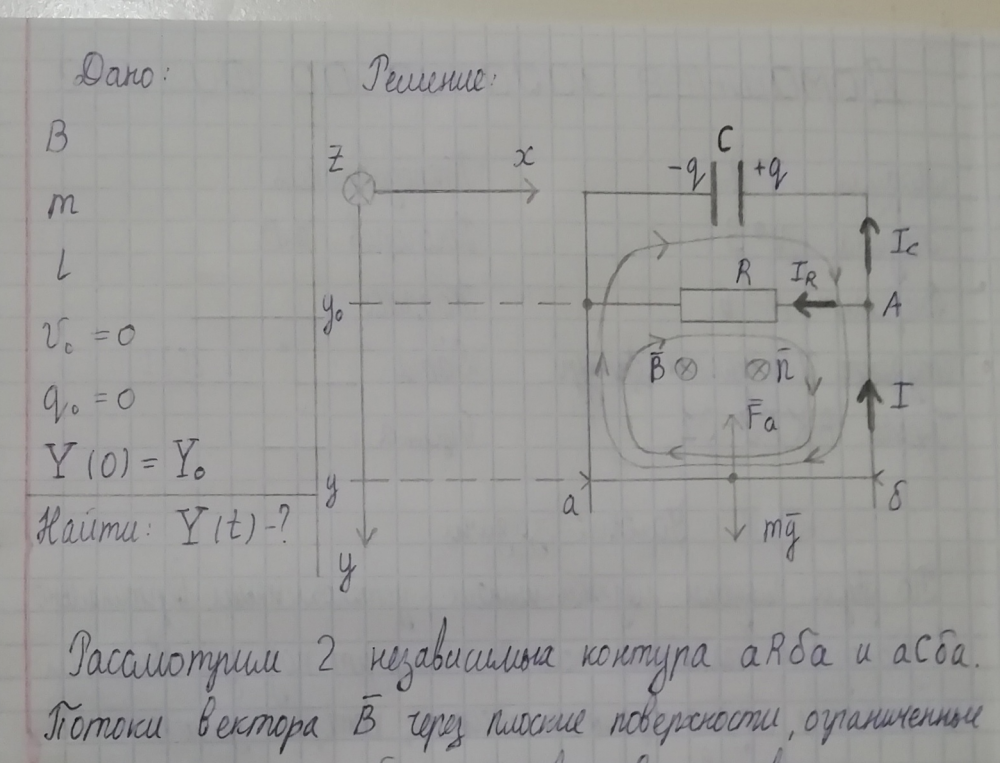 Дано:
Решение:
B
m
l
v₀ = 0
q₀ = 0
Y(0) = Y₀
Найти: Y(t) -?
Z
x
y₀
y
y
C
-q
+q
I_c
R
I_R
A
B̄
n̄
F̄a
I
а
б
mḡ
Рассмотрим 2 независимых контура аRба и аСба.
Потоки вектора B̄ через плоские поверхности, ограниченные